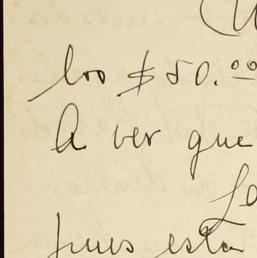 los $50.00
A ver que
pues esta